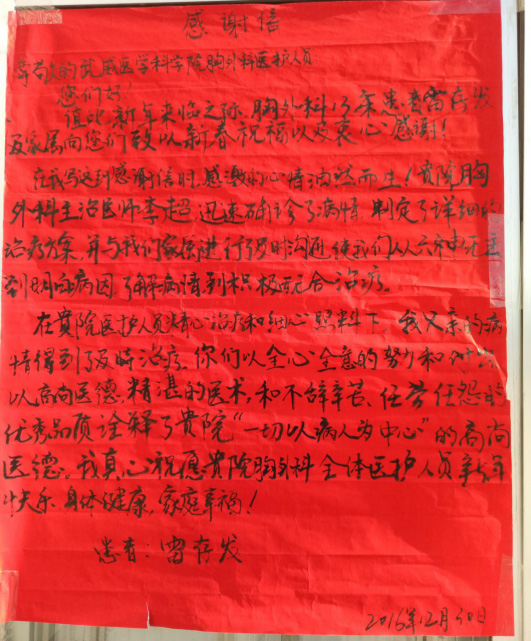 感谢信
尊敬的武威医学科学院胸外科医护人员
您们好!
值此新年来临之际,胸外科13床患者雷存发
及家属向您们致以新春祝福以及衷心感谢!
在我写这封感谢信时,感激的心情油然而生!贵院胸
外科主治医师李超迅速确诊了病情,制定了详细的
治疗方案,并与我们家属进行了及时沟通,使我们从六神无主
到明白病因了解病情到积极配合治疗。
在贵院医护人员精心治疗和细心照料下,我父亲的病
情得到了及时治疗。你们以全心全意的努力和
以高尚医德,精湛的医术,和不辞辛苦、任劳任怨的
优秀品质诠释了贵院“一切以病人为中心”的高尚
医德。我真心祝愿贵院胸外科全体医护人员新年
快乐 身体健康,家庭幸福!
患者:雷存发
2016年12月30日